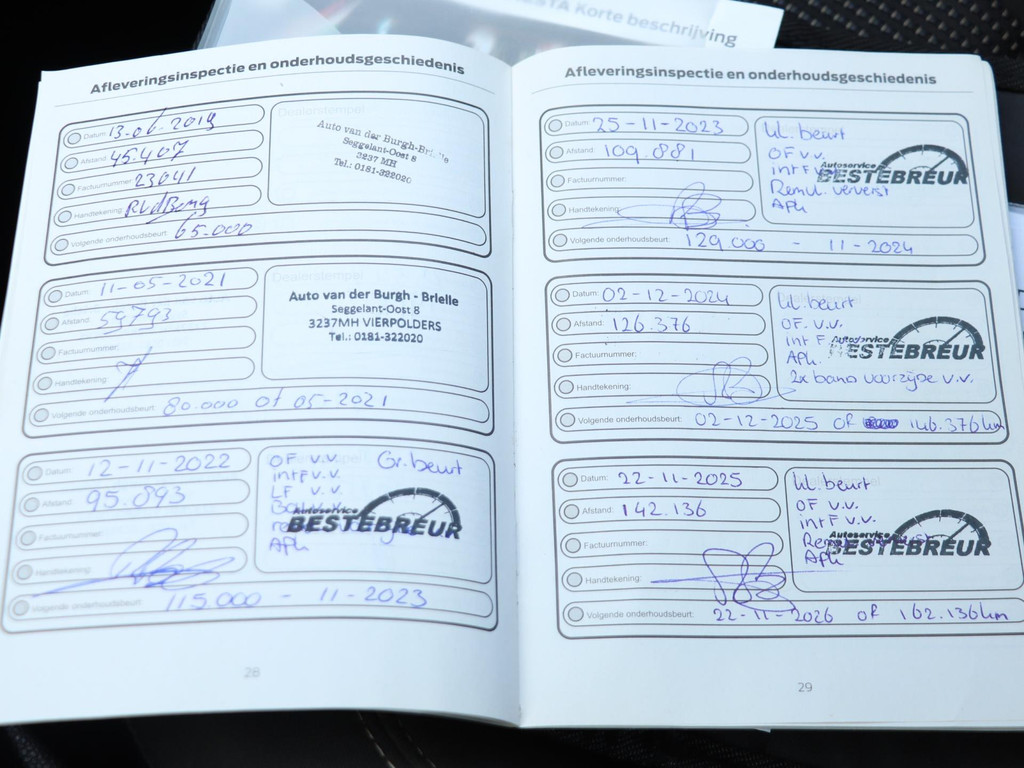 ESTA Korte beschrijving
Afleveringsinspectie en onderhoudsgeschiedenis
Datum: 13-06-2019
Afstand: 45.407
Factuurnummer: 23041
Handtekening:
Volgende onderhoudsbeurt: 65.000
Dealerstempel
Auto van der Burgh-Brielle
Seggelant-Oost 8
3237 MH
Tel.: 0181-322020
Datum: 11-05-2021
Afstand: 59793
Factuurnummer:
Handtekening:
Volgende onderhoudsbeurt: 80.000 of 05-2021
Dealerstempel
Auto van der Burgh - Brielle
Seggelant-Oost 8
3237MH VIERPOLDERS
Tel.: 0181-322020
Datum: 12-11-2022
Afstand: 95.893
Factuurnummer:
Handtekening:
Volgende onderhoudsbeurt: 115.000 - 11-2023
OF v.v. Gr. beurt
int F v.v.
LF v.v.
Autoservice
BESTEBREUR
APK
28
Afleveringsinspectie en onderhoudsgeschiedenis
Datum: 25-11-2023
Afstand: 109.881
Factuurnummer:
Handtekening:
Volgende onderhoudsbeurt: 129.000 - 11-2024
kl. beurt
OF v.v.
int F v.v.
Autoservice
BESTEBREUR
Remvl. ververst
APK
Datum: 02-12-2024
Afstand: 126.376
Factuurnummer:
Handtekening:
Volgende onderhoudsbeurt: 02-12-2025 OF 146.376km
kl. beurt
OF. v.v.
int F
Autoservice
BESTEBREUR
APK.
2x band voorzijde v.v.
Datum: 22-11-2025
Afstand: 142.136
Factuurnummer:
Handtekening:
Volgende onderhoudsbeurt: 22-11-2026 OF 162.136km
kl. beurt
OF v.v.
int F v.v.
Autoservice
BESTEBREUR
APK
29